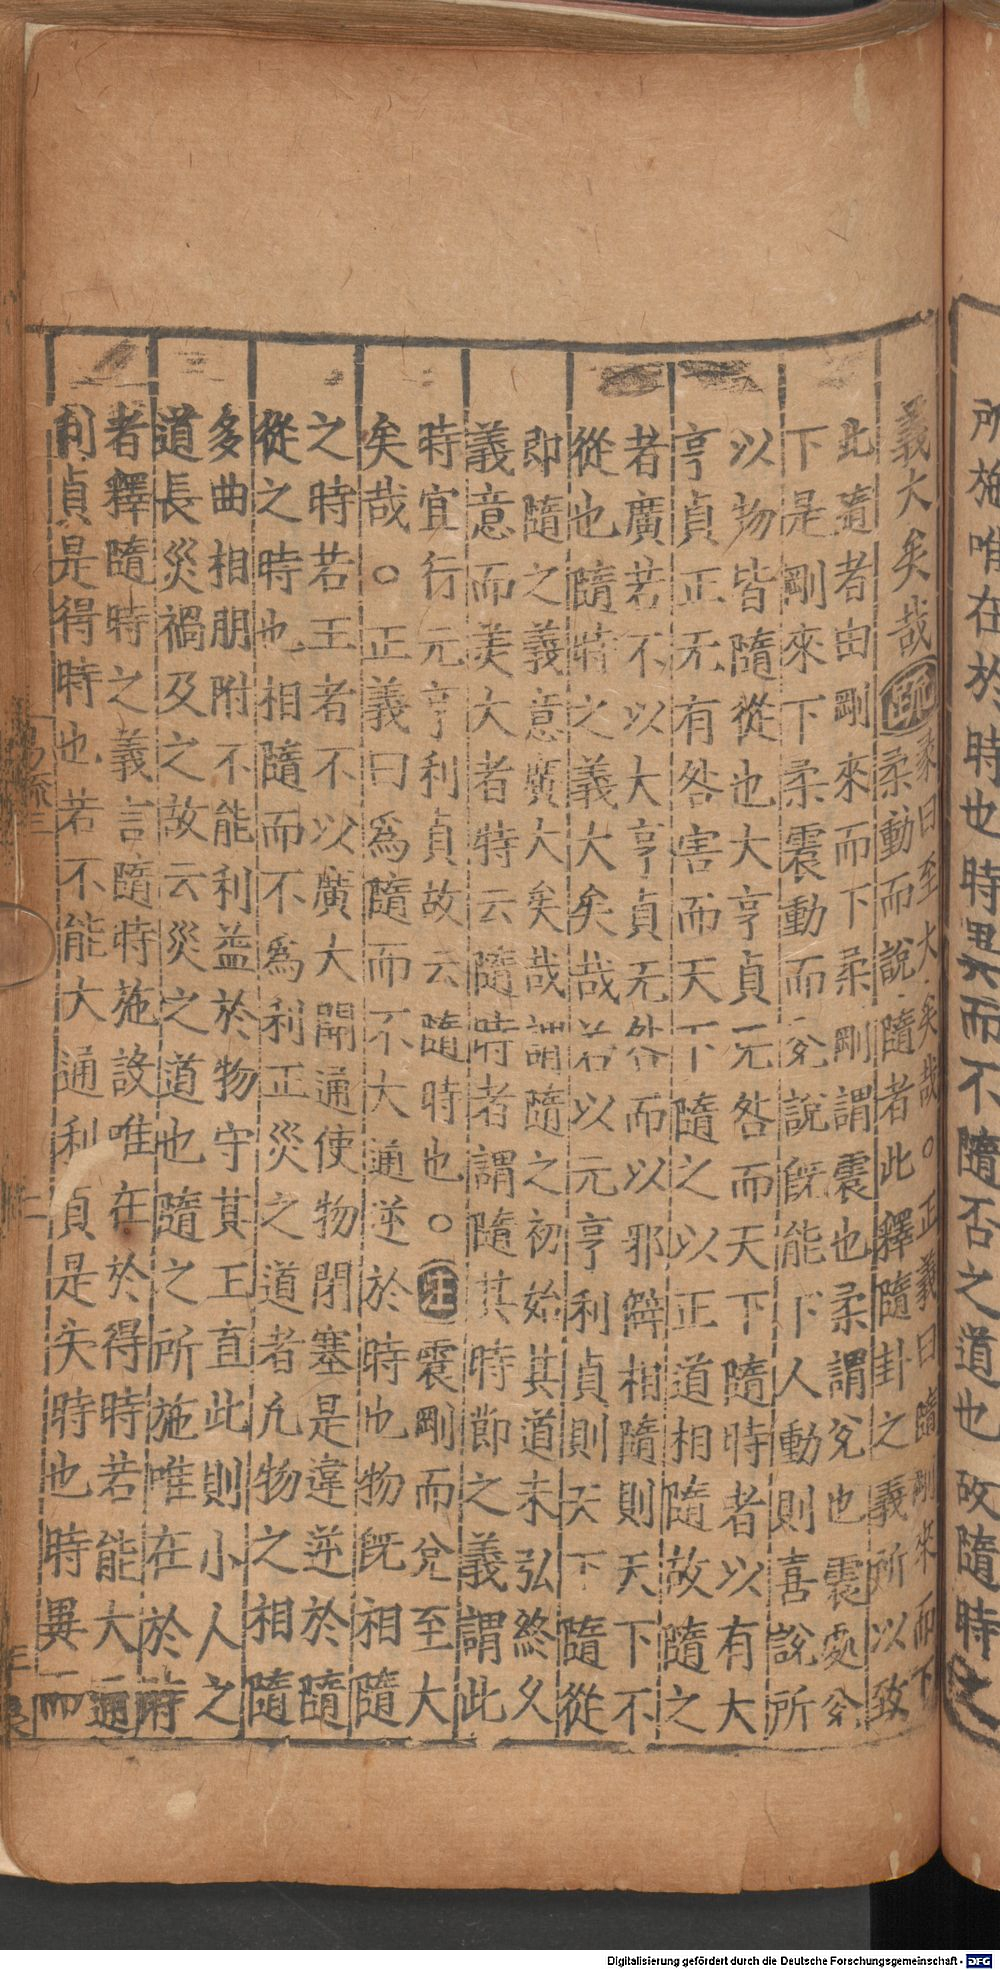 所施唯在於時也時異而不隨否之道也故隨時之
義大矣哉疏彖曰至大矣哉○正義曰隨剛來而下
柔動而說隨者此釋隨卦之義所以致
此隨者由剛來而下柔剛謂震也柔謂兌也震處兌
下是剛來下柔震動而兌說旣能下人動則喜說所
以物皆隨從也大亨貞无咎而天下隨時者以有大
亨貞正无有咎害而天下隨之以正道相隨故隨之
者廣若不以大亨貞无咎而以邪僻相隨則天下不
從也隨時之義大矣哉若以元亨利貞則天下隨從
即隨之義意廣大矣哉謂隨之初始其道未弘終久
義意而美大者特云隨時者謂隨其時節之義謂此
時宜行元亨利貞故云隨時也○注震剛而兌至大
矣哉○正義曰爲隨而不大通逆於時也物旣相隨
之時若王者不以廣大開通使物閉塞是違逆於隨
從之時也相隨而不爲利正災之道者凢物之相隨
多曲相朋附不能利益於物守其正直此則小人之
道長災禍及之故云災之道也隨之所施唯在於時
者釋隨時之義言隨時施設唯在於得時若能大通
利貞是得時也若不能大通利貞是失時也時異而
易疏三
二
Digitalisierung gefördert durch die Deutsche Forschungsgemeinschaft - DFG